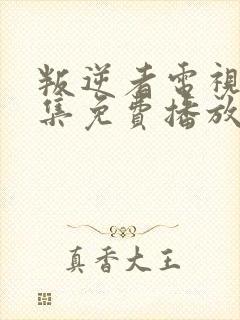 叛逆者電視
集免費播放
真香大王